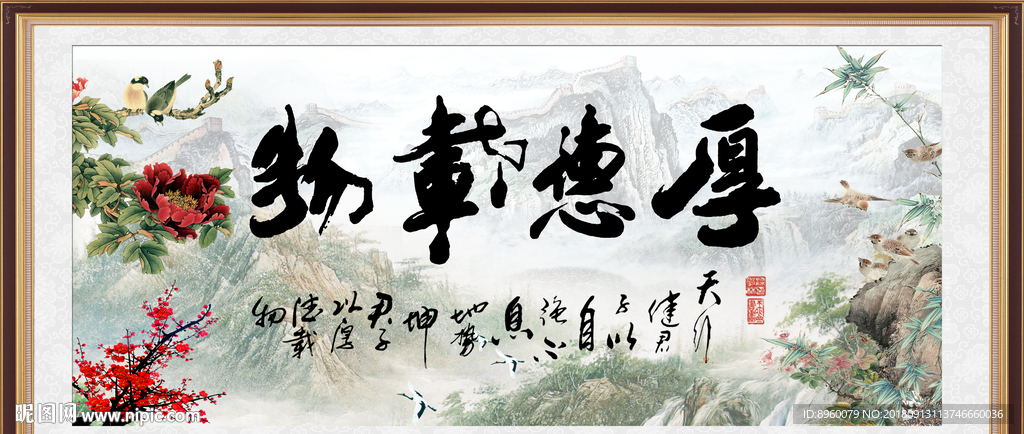 厚德载物
天行
健君
子以
自
强不
息
地势
坤
君子
以厚
德载
物
昵图网 www.nipic.com
ID:8960079 NO:20180913113746660036